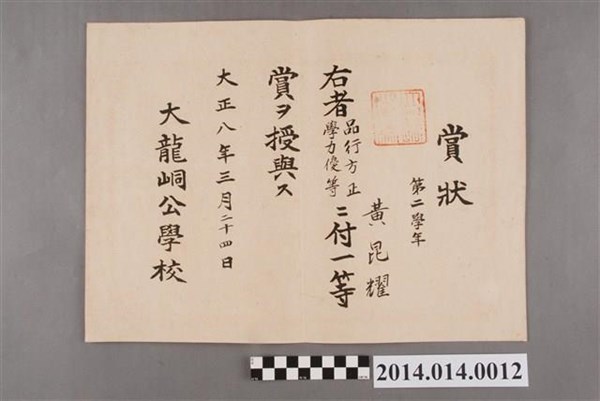 賞狀
第二學年
黃昆耀
右者品行方正學力優等ニ付一等
賞ヲ授與ス
大正八年三月二十四日
大龍峒公學校
2014.014.0012